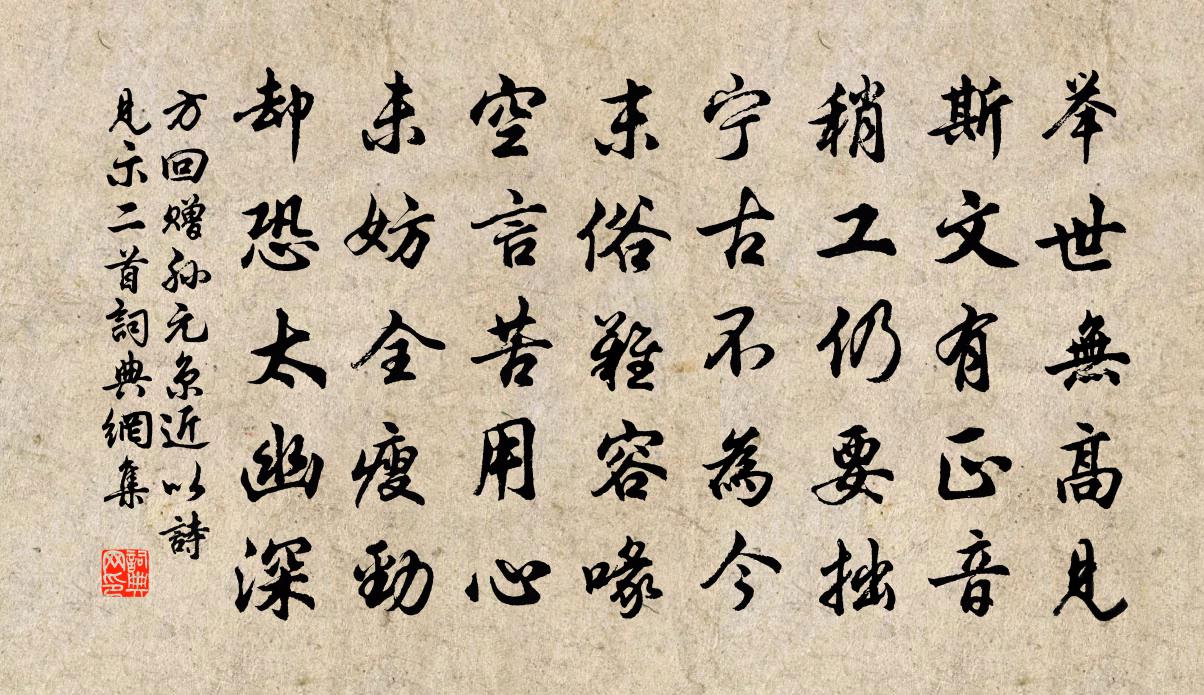 举世無高見
斯文有正音
稍工仍要拙
宁古不為今
末俗難容喙
空言苦用心
未妨全瘦勁
却恐太幽深
方回赠孙元京近以詩
見示二首詞典網集
詞典
网印